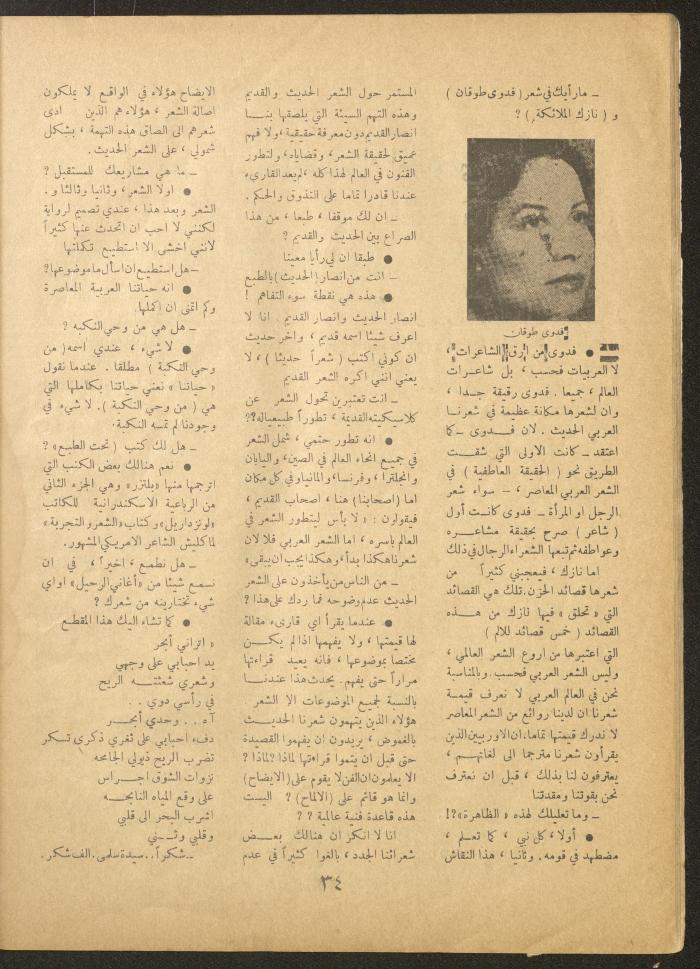 ـ ما رأيك في شعر (فدوى طوقان)
و (نازك الملائكة) ؟
فدوى طوقان
● فدوى من ارق الشاعرات ،
لا العربيات فحسب ، بل شاعرات
العالم ، جميعا . فدوى رقيقة جدا ،
وان لشعرها مكانة عظيمة في شعرنا
العربي الحديث . لان فدوى ـ كما
اعتقد ـ كانت الاولى التي شقت
الطريق نحو ( الحقيقة العاطفية ) في
الشعر العربي المعاصر ، ـ سواء شعر
الرجل او المرأة ـ فدوى كانت أول
( شاعر ) صرح بحقيقة مشاعره
وعواطفه ثم تبعها الشعراء الرجال في ذلك
اما نازك ، فيعجبني كثيراً من
شعرها قصائد الحزن . تلك هي القصائد
التي « تحلق » فيها نازك من هذه
القصائد ( خمس قصائد للالم )
التي اعتبرها من اروع الشعر العالمي ،
وليس الشعر العربي فحسب . وبالمناسبة
نحن في العالم العربي لا نعرف قيمة
شعرنا ان لدينا روائع من الشعر المعاصر
لا ندرك قيمتها تماما . ان الاوربيين الذين
يقرأون شعرنا مترجما الى لغاتهم ،
يعترفون لنا بذلك ، قبل ان نعترف
نحن بقوتنا ومقدتنا
ـ وما تعليلك لهذه « الظاهرة »؟!
● أولا ، كل نبي ، كما تعلم ،
مضطهد في قومه . وثانيا ، هذا النقاش
المستمر حول الشعر الحديث والقديم
وهذه التهم السيئة التي يلصقها بنا
انصار القديم دون معرفة حقيقية ، ولا فهم
عميق لحقيقة الشعر ، وقضاياه ، ولتطور
الفنون في العالم لهذا كله ، لم يعد القارىء
عندنا قادرا تماما على التذوق والحكم .
ـ ان لك موقفا ، طبعا ، من هذا
الصراع بين الحديث والقديم ؟
● طبقا ان لي رأيا معينا
ـ انت من انصار (الحديث) بالطبع
● هذه هي نقطة سوء التفاهم !
انصار الحديث وانصار القديم انا لا
اعرف شيئا اسمه قديم ، وآخر حديث
ان كوني اكتب ( شعراً حديثا ) ، لا
يعني انني اكره الشعر القديم
ـ انت تعتبرين تحول الشعر عن
كلاسيكيته القديمة ، تطوراً طبيعياله؟؟
● انه تطور حتمي ، شمل الشعر
في جميع انحاء العالم في الصين ، واليابان
وانجلترا ، وفرنسا ، والمانيا وفي كل مكان
اما (اصحابنا) هنا ، اصحاب القديم ،
فيقولون : « لا بأس ليتطور الشعر في
العالم باسره ، اما الشعر العربي فلا لان
شعرنا هكذا بدأ ، وهكذا يجب ان يبقى»
ـ من الناس من يأخذون على الشعر
الحديث عدم وضوحه فما ردك على هذا ؟
● عندما يقرأ اي قارىء مقالة
لها قيمتها ، ولا يفهمها اذا لم يكن
مختصا بموضوعها ، فانه يعيد قراءتها
مراراً حتى يفهم . يحدث هذا عندنا
بالنسبة لجميع الموضوعات الا الشعر
هؤلاء الذين يتهمون شعرنا الحديث
بالغموض ، يريدون ان يفهموا القصيدة
حتى قبل ان يتموا قراءتها لماذا ؟ لماذا ؟
الا يعلمون ان الفن لا يقوم على (الايضاح)
وانما هو قائم على (الالماح) ؟ اليست
هذه قاعدة فنية عالمية ؟ ؟
انا لا انكر ان هنالك بعض
شعرائنا الجدد ، بالغوا كثيراً في عدم
الايضاح هؤلاء في الواقع لا يملكون
اصالة الشعر ، هؤلاء هم الذين ادى
شعرهم الى الصاق هذه التهمة ، بشكل
شمولي ، على الشعر الحديث .
ـ ما هي مشاريعك للمستقبل ؟
● اولا الشعر ، وثانيا وثالثا و .
الشعر وبعد هذا ، عندي تصميم لرواية
لكنني لا احب ان اتحدث عنها كثيراً
لانني اخشى الا استطيع تكملتها
ـ هل استطيع ان اسأل ما موضوعها؟
● انه حياتنا العربية المعاصرة
وكم اتمنى ان اكملها.
ـ هل هي من وحي النكبه ؟
● لا شيء ، عندي اسمه ( من
وحي النكبة ) مطلقا . عندما نقول
« حياتنا » نعني حياتنا بكاملها التي
هي ( من وحي النكبة ). لا شيء في
وجودنا لم تمسه النكبة.
ـ هل لك كتب ( تحت الطبع) ؟
● نعم هنالك بعض الكتب التي
اترجمها منها «بلتزر» وهي الجزء الثاني
من الرباعية الاسكندرانية للكاتب
«لونز داريل» وكتاب «الشعر والتجربة»
لماكليش الشاعر الامريكي المشهور.
ـ هل نطمع ، اخيراً ، في ان
نسمع شيئا من « أغاني الرحيل» او اي
شيء تختارينه من شعرك ؟
● كما تشاء اليك هذا المقطع
« اتراني أبحر
يد احبابي على وجهي
وشعري شعثته الريح
في رأسي دوي . .
آه . . وحدي أبحر
دفء احبابي على ثغري ذكرى تسكر
تضرب الريح ذيولي الجامحه
نزوات الشوق اجراس
على وقع المياه النابحه
اشرب البحر الى قلبي
وقلبي وثني
ـ شكراً . . سيدة سلمى . الف شكر .
٣٤